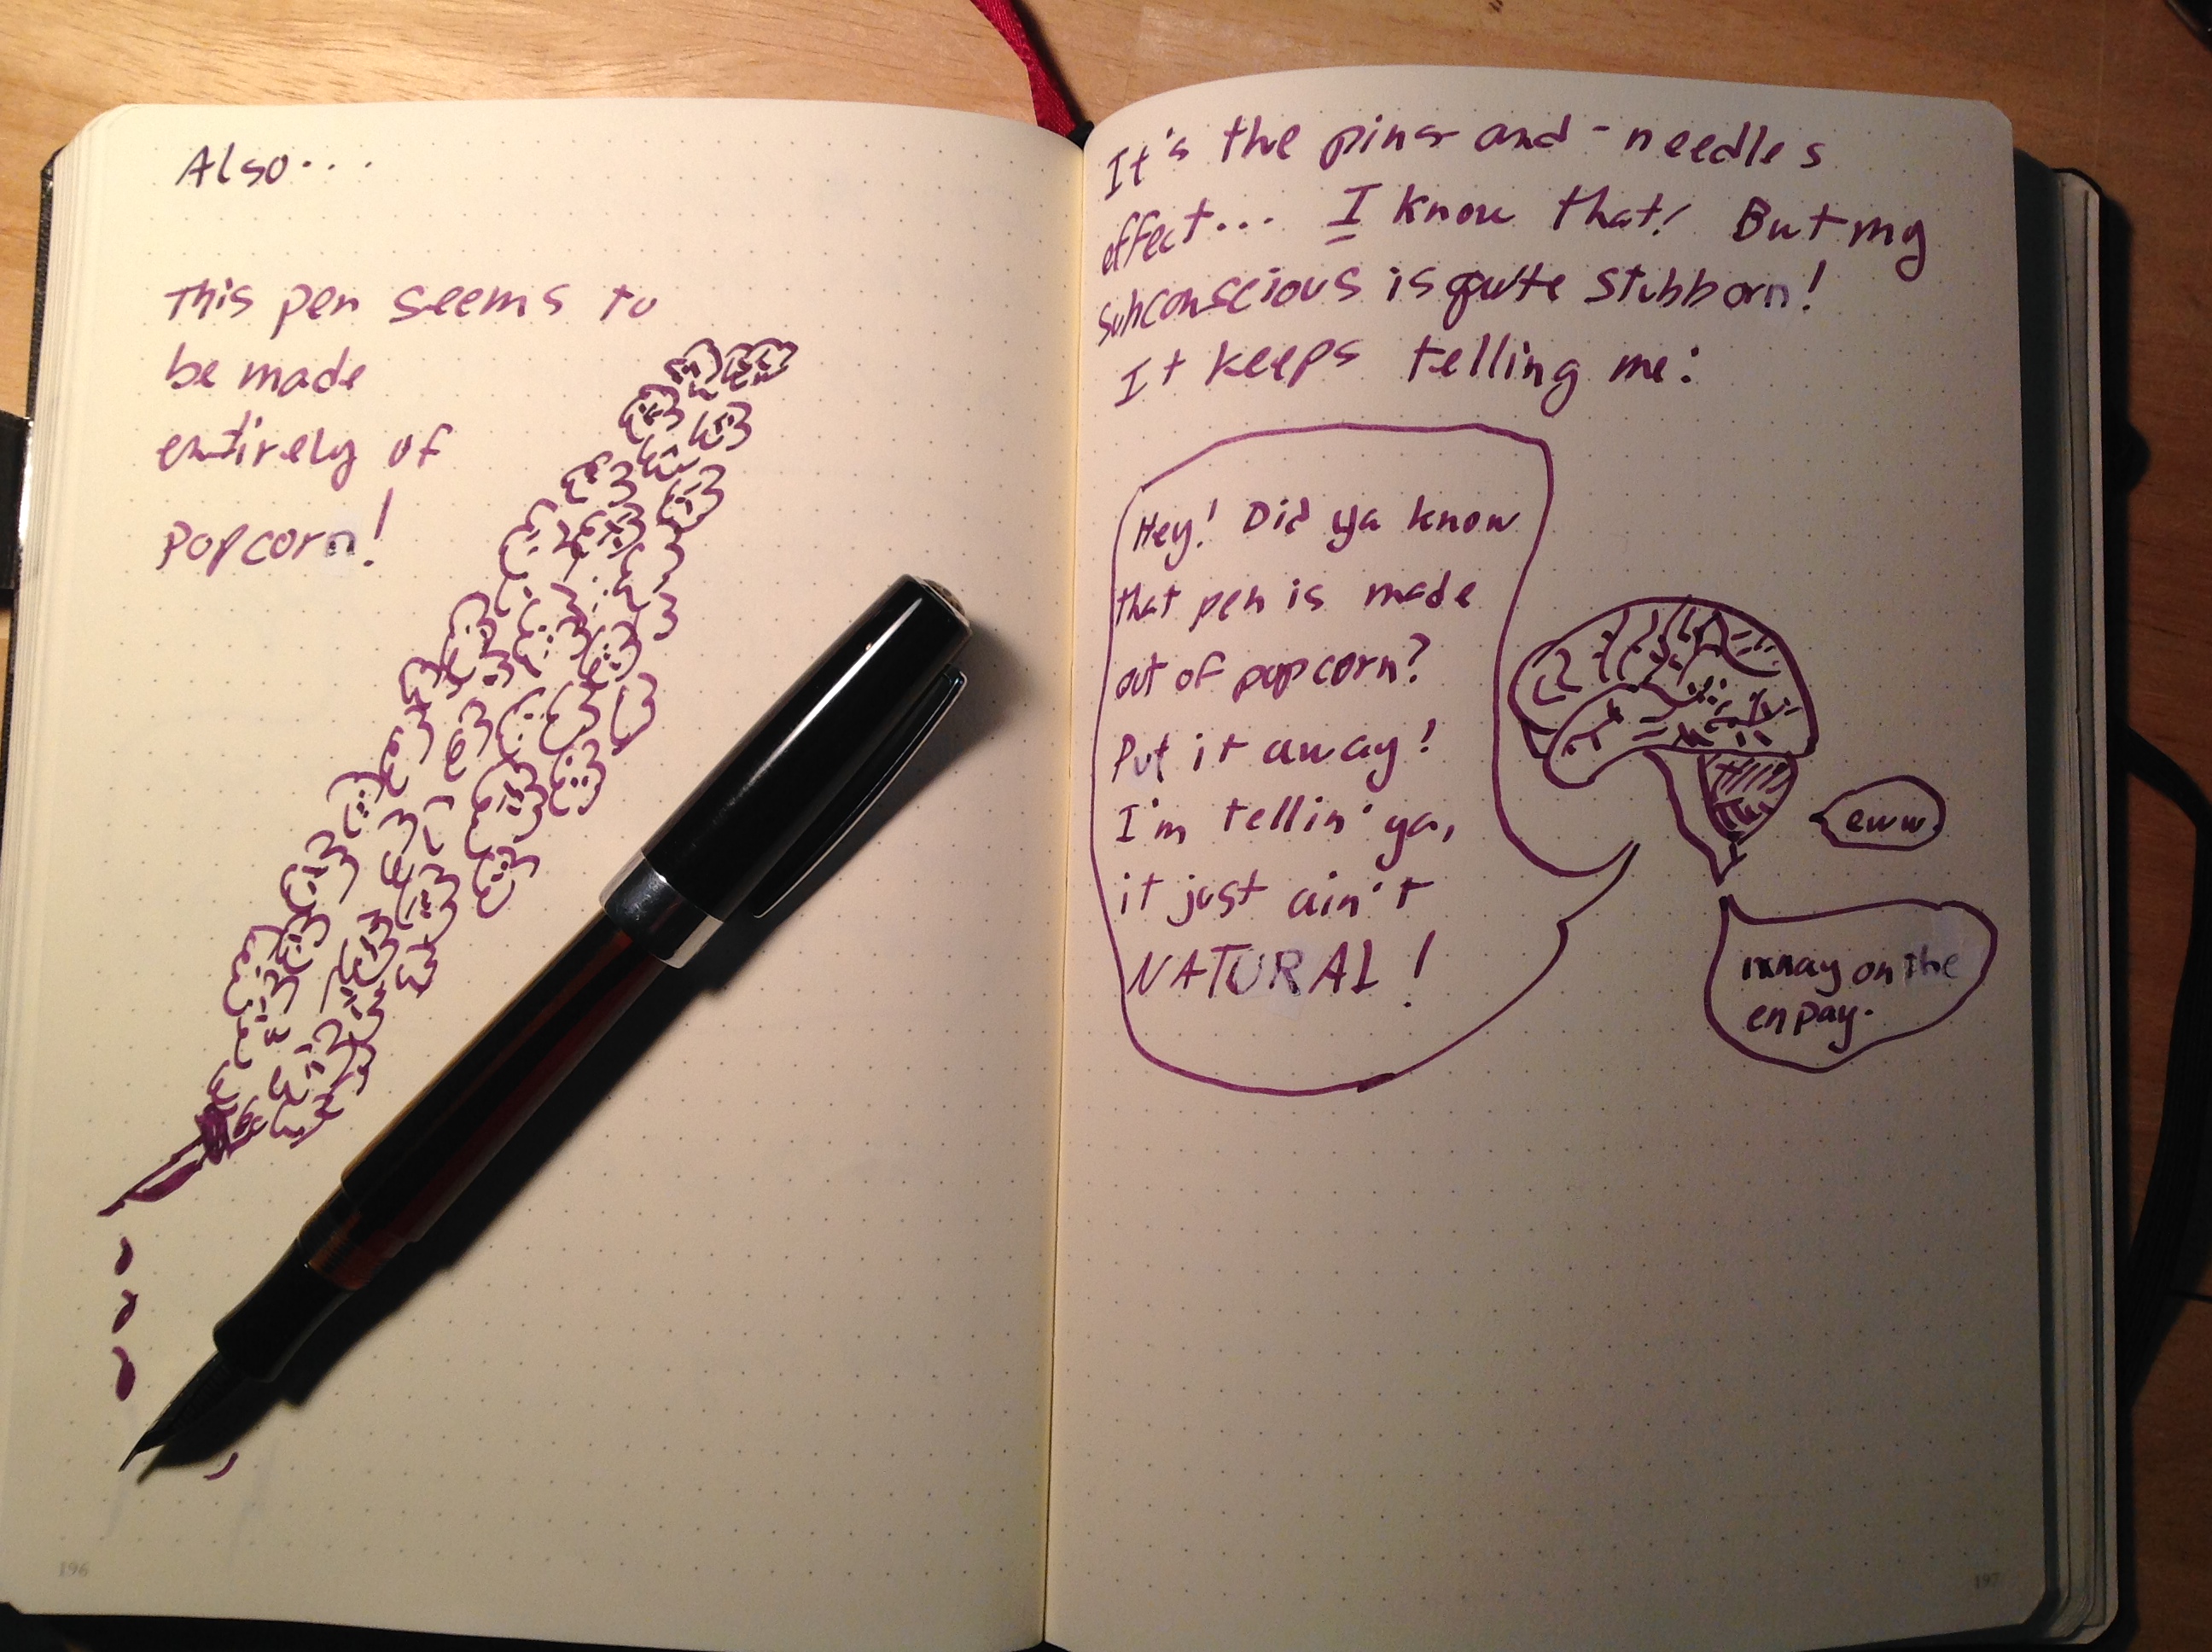 Also...
This pen seems to
be made
entirely of
popcorn!
196
It's the pins-and-needles
effect... I know that! But my
subconscious is quite stubborn!
It keeps telling me:
Hey! Did ya know
that pen is made
out of popcorn?
Put it away!
I'm tellin' ya,
it just ain't
NATURAL!
eww
ixnay on the
enpay.
197